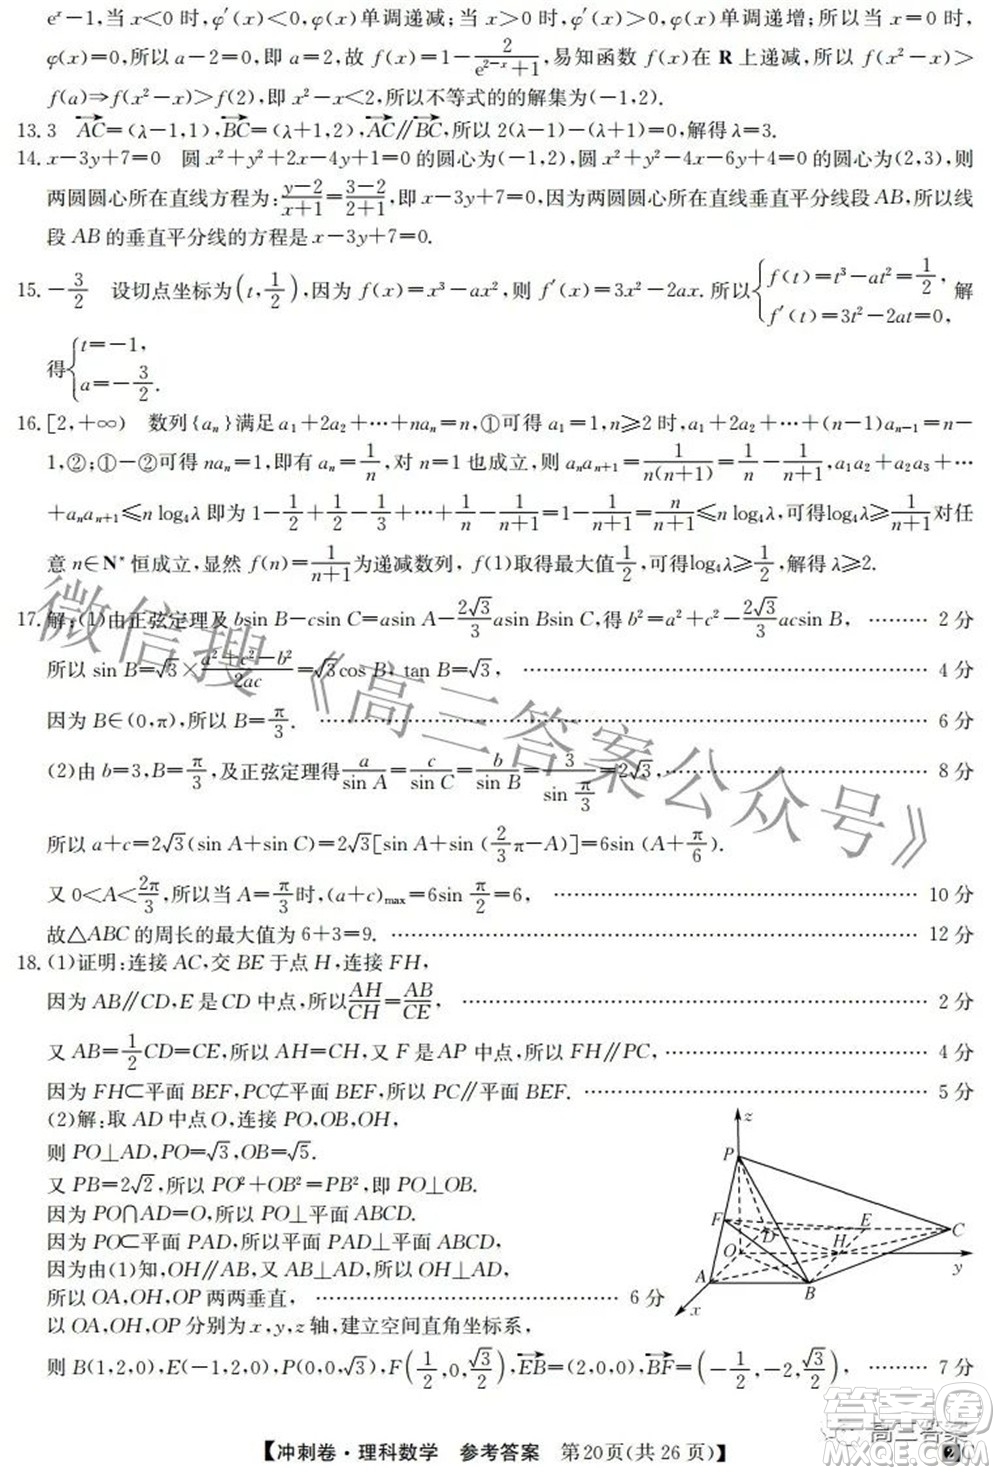 eˣ-1,当 x<0 时,φ′(x)<0,φ(x)单调递减;当 x>0 时,φ′(x)>0,φ(x)单调递增;所以当 x=0 时,
φ(x)=0,所以 a-2=0,即 a=2,故 f(x)=1-2/(e²⁻ˣ+1),易知函数 f(x)在 R 上递减,所以 f(x²-x)>
f(a)⇒f(x²-x)>f(2),即 x²-x<2,所以不等式的的解集为(-1,2).
13. 3 AC→=(λ-1,1),BC→=(λ+1,2),AC→∥BC→,所以 2(λ-1)-(λ+1)=0,解得 λ=3.
14. x-3y+7=0 圆 x²+y²+2x-4y+1=0 的圆心为(-1,2),圆 x²+y²-4x-6y+4=0 的圆心为(2,3),则
两圆圆心所在直线方程为:(y-2)/(x+1)=(3-2)/(2+1),即 x-3y+7=0,因为两圆圆心所在直线垂直平分线段 AB,所以线
段 AB 的垂直平分线的方程是 x-3y+7=0.
15. -3/2 设切点坐标为(t,1/2),因为 f(x)=x³-ax²,则 f′(x)=3x²-2ax. 所以{f(t)=t³-at²=1/2, f′(t)=3t²-2at=0, 解
得{t=-1, a=-3/2.
16. [2,+∞) 数列{aₙ}满足 a₁+2a₂+⋯+naₙ=n,①可得 a₁=1,n≥2 时,a₁+2a₂+⋯+(n-1)aₙ₋₁=n-
1,②;①-②可得 naₙ=1,即有 aₙ=1/n,对 n=1 也成立,则 aₙaₙ₊₁=1/(n(n+1))=1/n-1/(n+1),a₁a₂+a₂a₃+⋯
+aₙaₙ₊₁≤n log₄λ 即为 1-1/2+1/2-1/3+⋯+1/n-1/(n+1)=1-1/(n+1)=n/(n+1)≤n log₄λ,可得log₄λ≥1/(n+1)对任
意 n∈N* 恒成立,显然 f(n)=1/(n+1)为递减数列,f(1)取得最大值1/2,可得log₄λ≥1/2,可得 λ≥2.
17. 解:(1)由正弦定理及 bsin B-csin C=asin A-(2√3/3)asin Bsin C,得 b²=a²+c²-(2√3/3)acsin B, ⋯⋯⋯ 2 分
所以 sin B=√3×(a²+c²-b²)/(2ac)=√3cos B,tan B=√3, ⋯⋯⋯ 4 分
因为 B∈(0,π),所以 B=π/3. ⋯⋯⋯ 6 分
(2)由 b=3,B=π/3,及正弦定理得a/sin A=c/sin C=b/sin B=3/sin(π/3)=2√3, ⋯⋯⋯ 8 分
所以 a+c=2√3(sin A+sin C)=2√3[sin A+sin (2/3π-A)]=6sin (A+π/6).
又 0<A<2π/3,所以当 A=π/3时,(a+c)max=6sin π/2=6, ⋯⋯⋯ 10 分
故△ABC 的周长的最大值为 6+3=9. ⋯⋯⋯ 12 分
18. (1)证明:连接 AC,交 BE 于点 H,连接 FH,
因为 AB∥CD,E 是 CD 中点,所以AH/CH=AB/CE, ⋯⋯⋯ 2 分
又 AB=1/2CD=CE,所以 AH=CH,又 F 是 AP 中点,所以 FH∥PC, ⋯⋯⋯ 4 分
因为 FH⊂平面 BEF,PC⊄平面 BEF,所以 PC∥平面 BEF. ⋯⋯⋯ 5 分
(2)解:取 AD 中点 O,连接 PO,OB,OH,
则 PO⊥AD,PO=√3,OB=√5.
又 PB=2√2,所以 PO²+OB²=PB²,即 PO⊥OB.
因为 PO∩AD=O,所以 PO⊥平面 ABCD.
因为 PO⊂平面 PAD,所以平面 PAD⊥平面 ABCD.
因为由(1)知,OH∥AB,又 AB⊥AD,所以 OH⊥AD,
所以 OA,OH,OP 两两垂直, ⋯⋯⋯ 6 分
以 OA,OH,OP 分别为 x,y,z 轴,建立空间直角坐标系,
则 B(1,2,0),E(-1,2,0),P(0,0,√3),F(1/2,0,√3/2),EB→=(2,0,0),BF→=(-1/2,-2,√3/2), ⋯⋯⋯ 7 分
z
P
F
E
C
D
O
H
y
A
B
x
【冲刺卷·理科数学 参考答案 第20页(共 26 页)】
微信搜《高三答案公众号》
高三答案
MXQE.COM